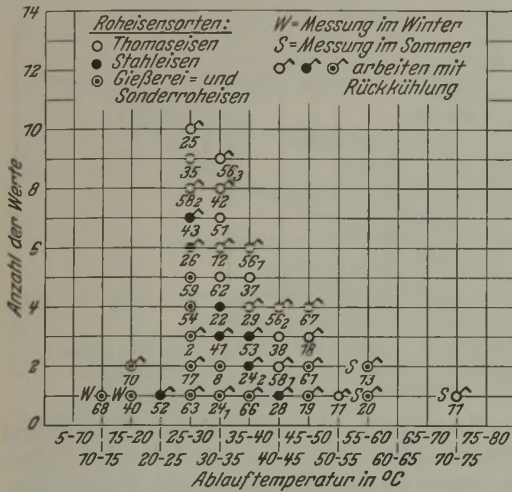 Roheisensorten:
Thomaseisen
Stahleisen
Gießerei= und
Sonderroheisen
W=Messung im Winter
S=Messung im Sommer
arbeiten mit
Rückkühlung
Anzahl der Werte
14
12
10
8
6
4
2
0
25
35 56₃
58₂ 42
43 51
26 12 56₁
59 62 37
54 22 29 56₂ 67
2 47 53 38 18
70 17 8 24₂ 58₁ 61 S 13
W W S S
68 40 52 63 24₁ 66 28 19 11 20 71
5-10 15-20 25-30 35-40 45-50 55-60 65-70 75-80
10-15 20-25 30-35 40-45 50-55 60-65 70-75
Ablauftemperatur in °C